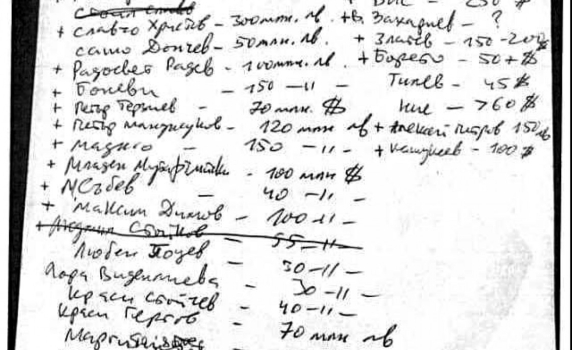 ВИС - 250 $
+ Славчо Христов - 300 млн. лв. + В. Захариев - ?
Сашо Дончев - 50 млн. лв. + Златев - 150-200 $
+ Радосвет Радев - 100 млн. лв. + Борето - 50 + $
+ Боневи - 150 -"- Тилев - 45 $
+ Петър Терзиев - 70 млн. $ Ние - > 60 $
+ Петър Манджуков - 120 млн лв + Алексей Петров 150 лв
+ Маджо - 150 -"- + Кашукеев - 100 $
+ Младен Мутафчийски - 100 млн $
+ М. Събев - 40 -"-
+ Максим Димов - 100 -"-
+ Людмил Стойков - 55 -"-
Любен - 30 -"-
Лора Виденлиева - 30 -"-
Краси Стойчев - 40 -"-
Краси Гергов - 70 млн лв